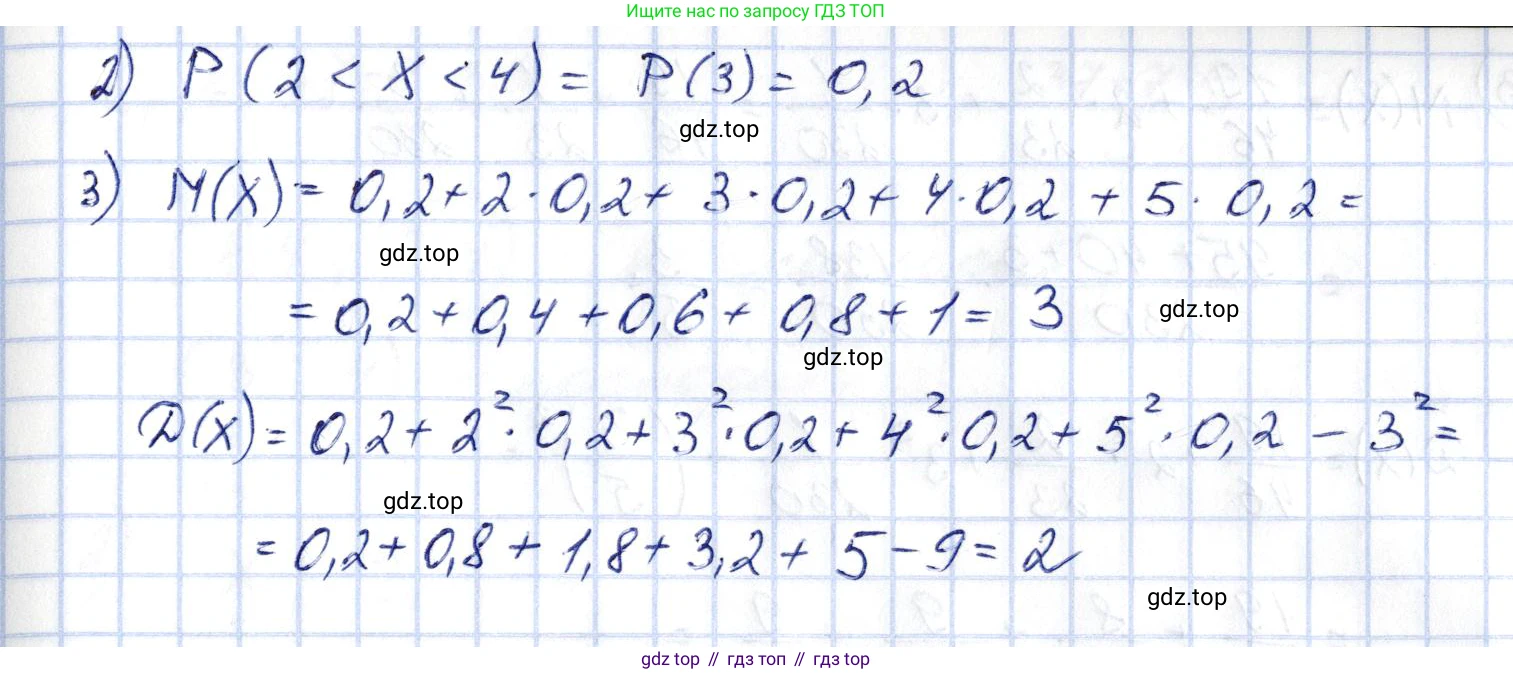 Ищите нас по запросу ГДЗ ТОП
2) P(2 < X < 4) = P(3) = 0,2
gdz.top
3) M(X) = 0,2 + 2 · 0,2 + 3 · 0,2 + 4 · 0,2 + 5 · 0,2 =
gdz.top
= 0,2 + 0,4 + 0,6 + 0,8 + 1 = 3
gdz.top
gdz.top
D(X) = 0,2 + 2² · 0,2 + 3² · 0,2 + 4² · 0,2 + 5² · 0,2 – 3² =
gdz.top
= 0,2 + 0,8 + 1,8 + 3,2 + 5 – 9 = 2
gdz.top
gdz top // гдз топ // гдз top